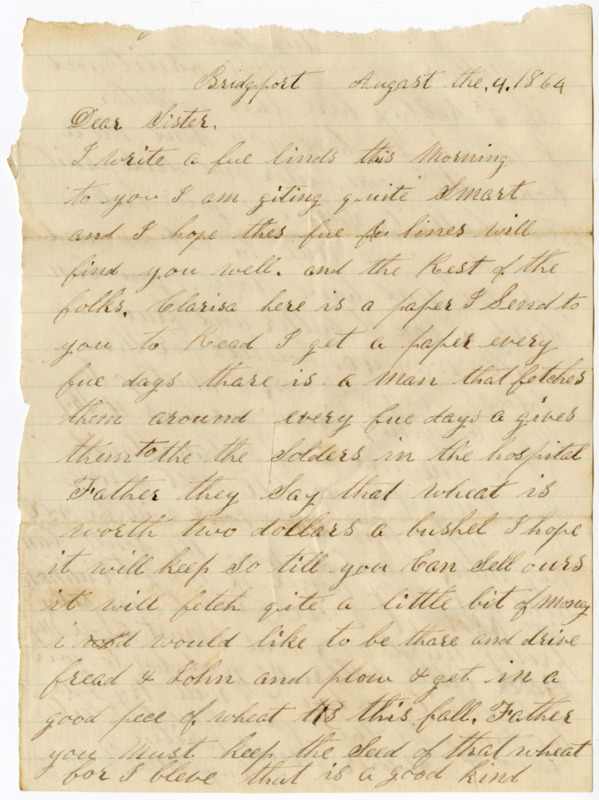 Bridgport August the, 4. 1864
Dear Sister.
I write a fue linds this Morning
to you I am giting quite Smart
and I hope thes fue lines will
find you well. and the Rest of the
folks. Clarisa here is a paper I Send to
you to Read I get a paper every
fue days thare is a man that fetches
them around every fue days a gives
them to the the Solders in the hospital
Father they Say that wheat is
worth two dollars a bushel I hope
it will keep So till you Can Sell ours
it will fetch qite a little bit of Money
i would like to be thare and drive
fread & John and plow & get in a
good pece of wheat this fall. Father
you Must keep the Seed of that wheat
for I bleve that is a good kind